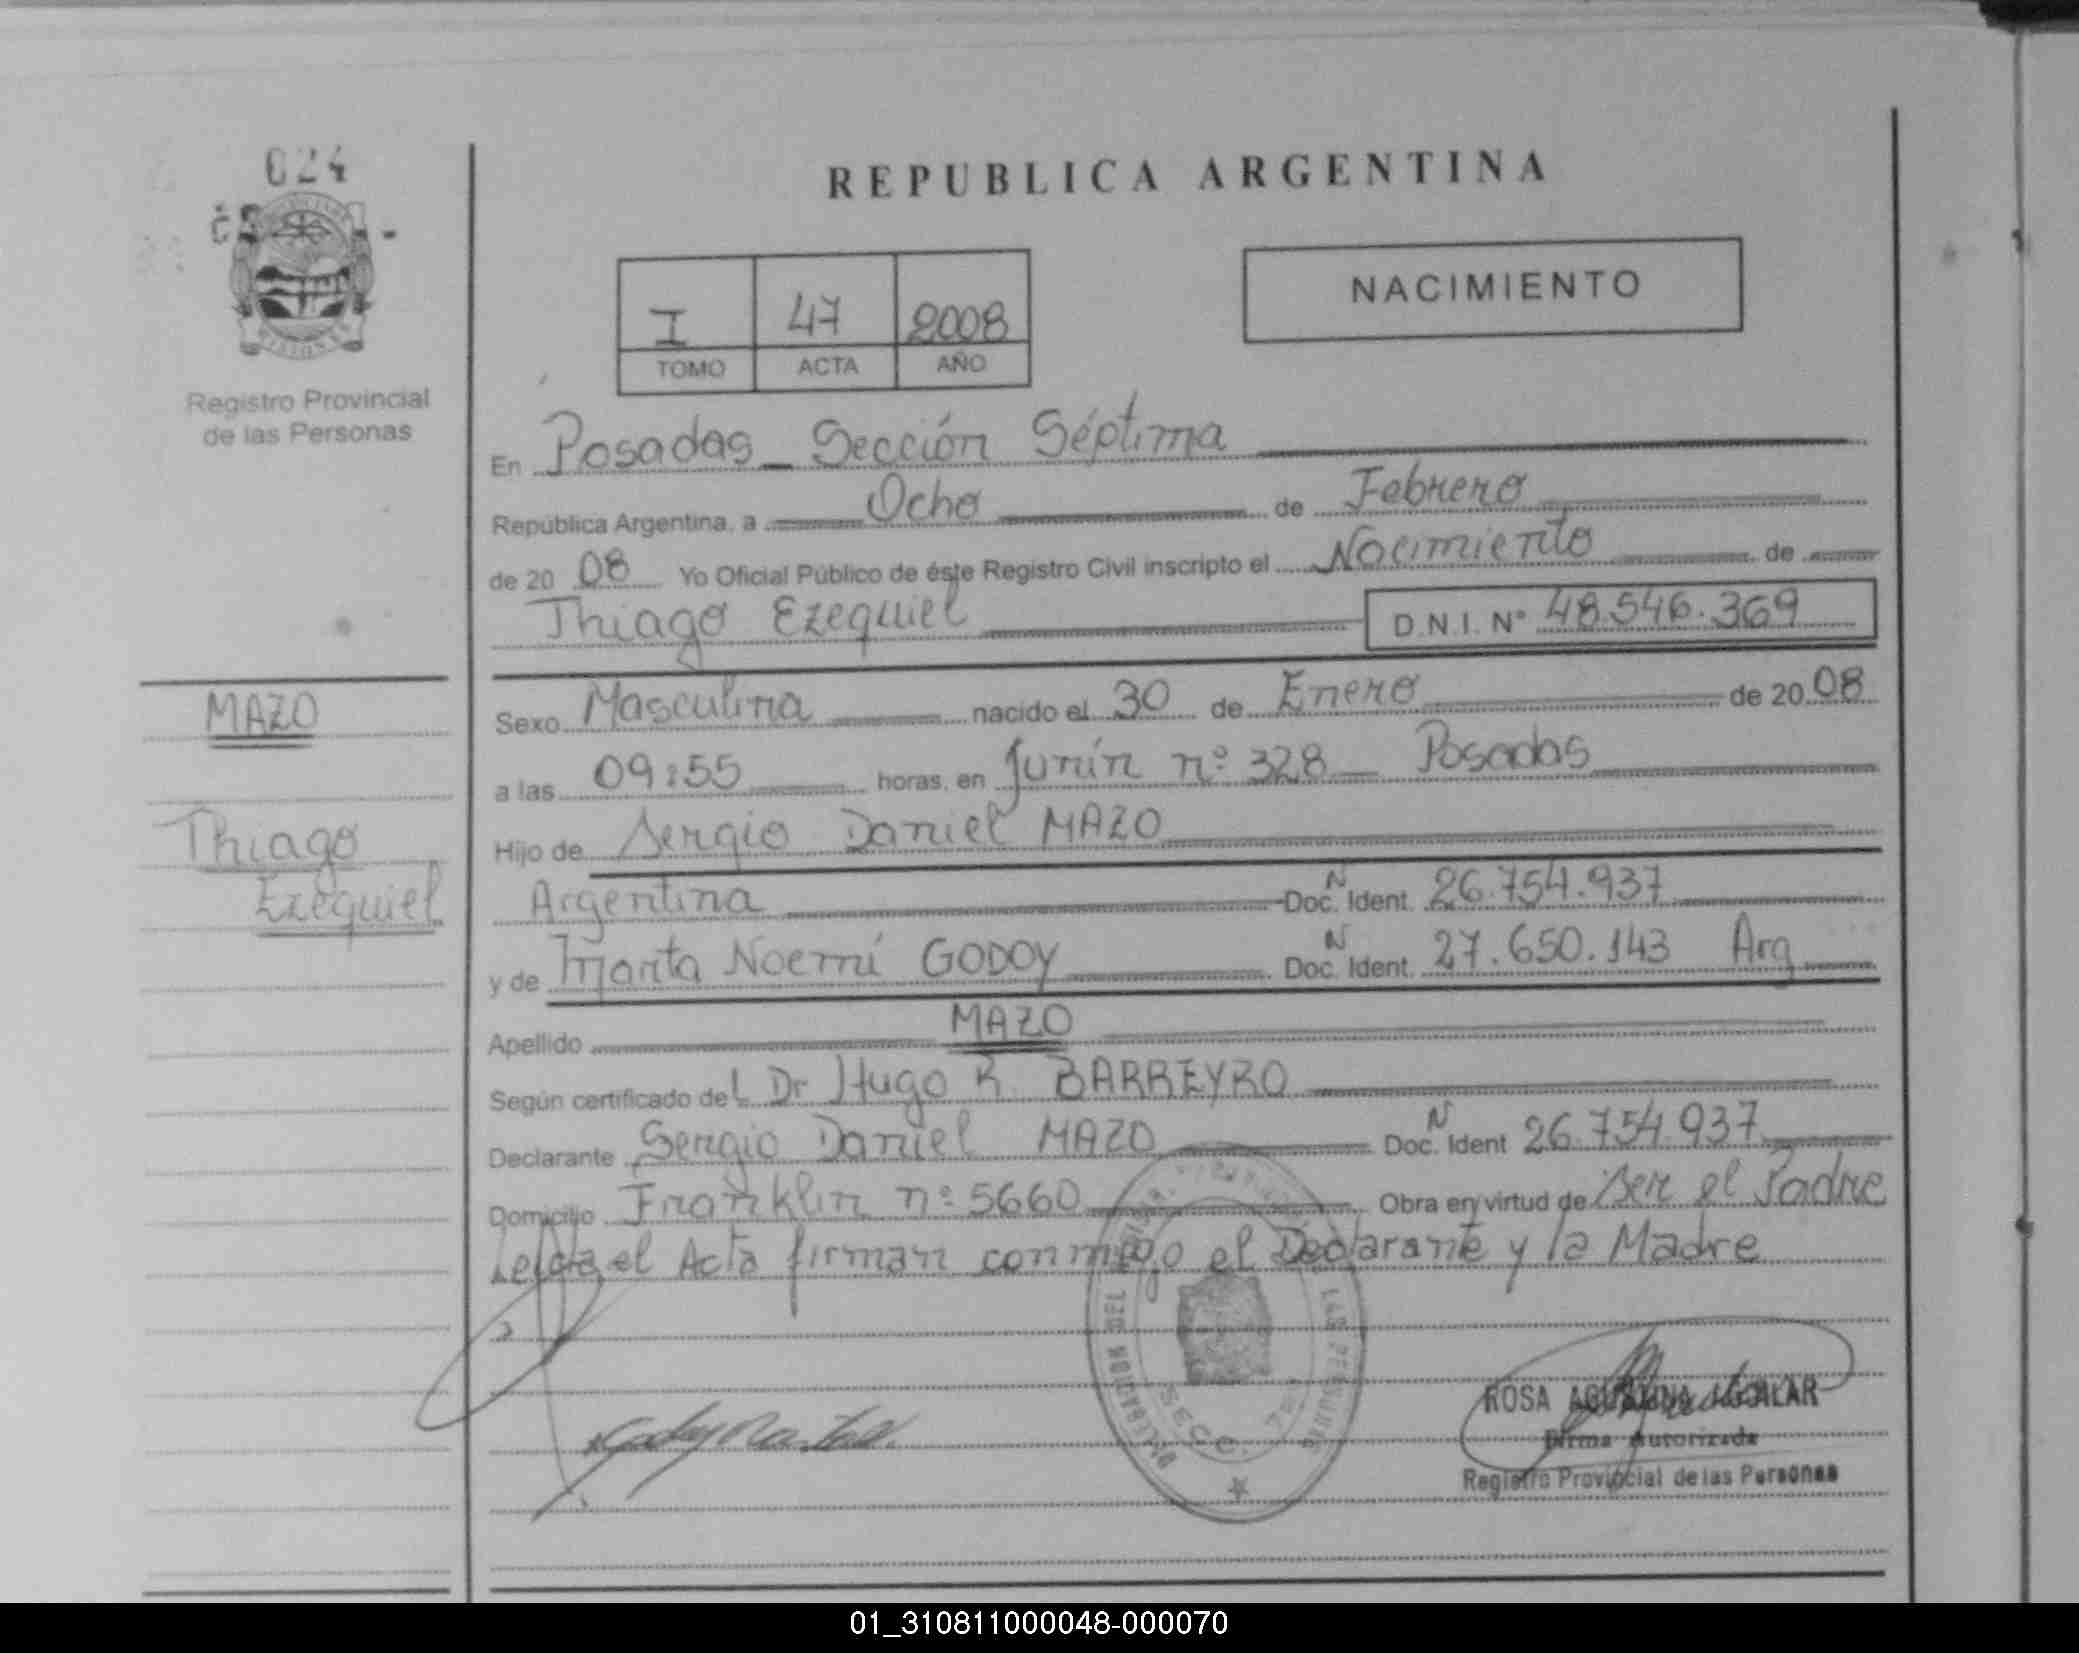 024
REPUBLICA ARGENTINA
I 47 2008
TOMO ACTA AÑO
NACIMIENTO
Registro Provincial
de las Personas
En Posadas - Sección Séptima
República Argentina, a Ocho de Febrero
de 20 08 Yo Oficial Público de éste Registro Civil inscripto el Nacimiento de
Thiago Ezequiel D.N.I. Nº 48.546.369
MAZO
Thiago
Ezequiel
Sexo Masculino nacido el 30 de Enero de 20 08
a las 09:55 horas, en Junín nº 328 - Posadas
Hijo de Sergio Daniel MAZO
Argentina Doc. N Ident. 26.754.937
y de Marta Noemí GODOY Doc. N Ident. 27.650.143 Arg
Apellido MAZO
Según certificado del Dr Hugo R. BARREYRO
Declarante Sergio Daniel MAZO Doc. N Ident 26.754.937
Domicilio Franklin nº 5660 Obra en virtud de Ser el Padre
Leída el Acta firman conmigo el Declarante y la Madre
LAS PERSONAS
SECC. 7
ROSA AGUSTINA AGUILAR
Firma Autorizada
Registro Provincial de las Personas
01_310811000048-000070